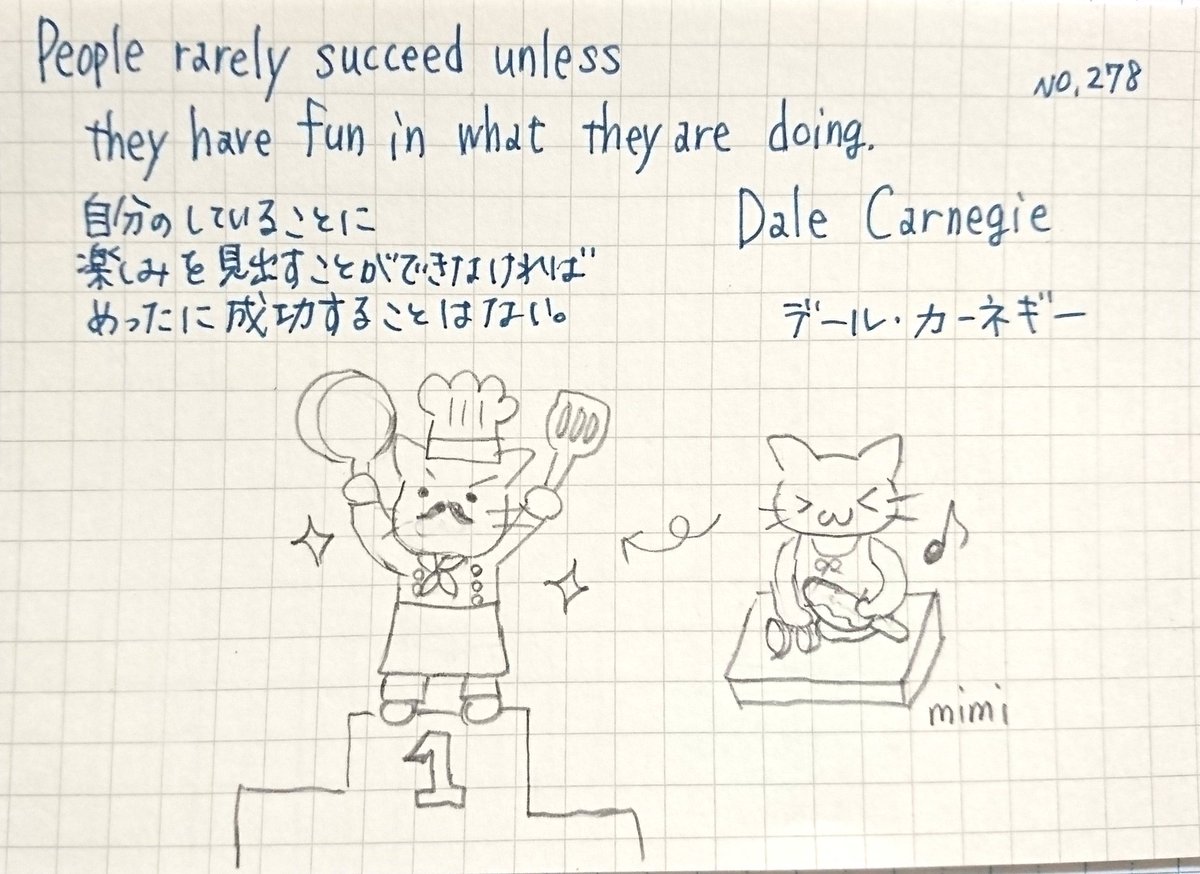 People rarely succeed unless
NO.278
they have fun in what they are doing.
自分のしていることに
楽しみを見出すことができなければ
めったに成功することはない。
Dale Carnegie
デール・カーネギー
1
mimi